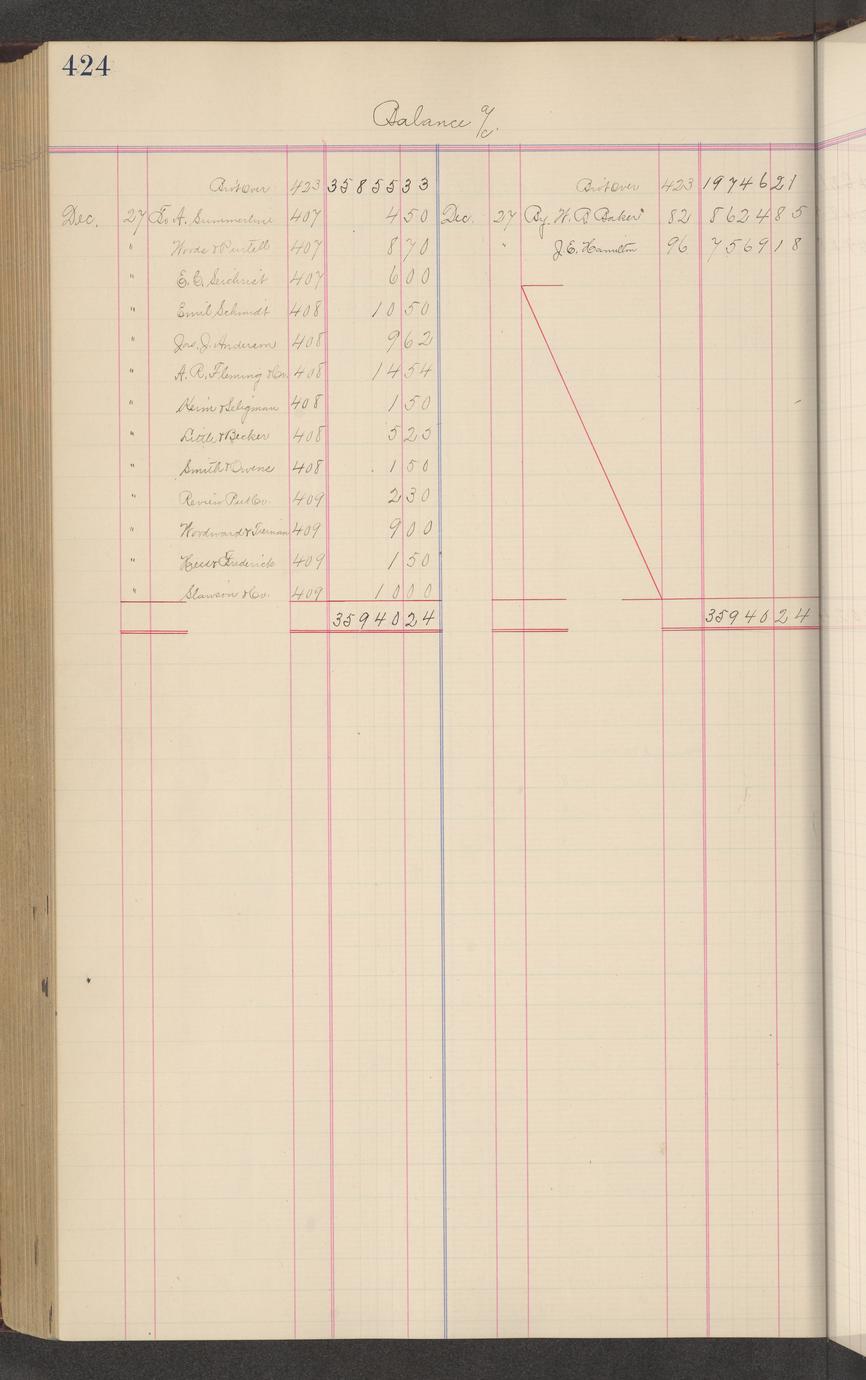 424
Balance a/c.
Bro't Over 423 35855 33
Dec. 27 To A. Summerline 407 4 50
" Woods & Purtell 407 8 70
" E. C. 407 6 00
" Emil Schmidt 408 10 50
" Jas. J. Anderson 408 9 62
" A. R. Fleming & Co. 408 14 54
" Keim & Seligman 408 1 50
" Little & Becker 408 5 25
" Smith & Owens 408 1 50
" Review Pub Co. 409 2 30
" Woodward & Tiernan 409 9 00
" & Frederick 409 1 50
" Slawson & Co. 409 10 00
35940 24
Bro't Over 423 19746 21
Dec. 27 By W. B. Baker 82 8624 85
" J. E. Hamilton 96 7569 18
35940 24